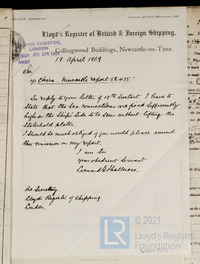 Lloyd's Register of British & Foreign Shipping,
Collingwood Buildings, Newcastle-on-Tyne.
19 April 1909
LLOYD'S REGISTER,
LONDON.
APR 1909
Sir
Newcastle report
In reply to your letter of inst. I have to
state that the Sea connections are fixed sufficiently
high on the ship's side to be seen without lifting the
stokehold plates
I should be much obliged if you would please amend
this omission on my report.
I am Sir
your obedient Servant
The Secretary
Lloyds Register of Shipping
London
© 2021
Lloyd's Register
Foundation